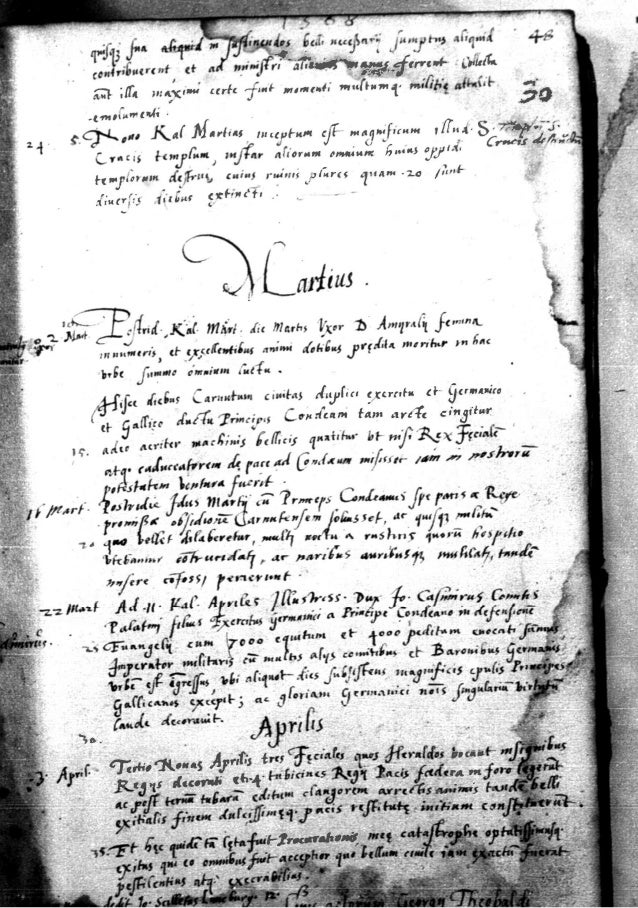 1568
48
quisq; sua aliquid in sustinendos belli necessarij sumptus aliquid
contribuerent, et ad ministri manus ferrent. Collecta
aut illa maximi certe fuit momenti multumq. militiæ attulit
emolumenti.
30
24 5. Nono Kal Martias inceptum est magnificum illud S.
Crucis templum, instar aliorum omnium huius oppidi
templorum destrui, cuius ruinis plures quam .20. sunt
diversis diebus extincti.
Templū S.
Crucis
Martius.
2 Mart.
Postrid. Kal. Mart. die Martis Vxor D Amyralij femina
innumeris, et excellentibus animi dotibus prędita moritur in hac
vrbe summo omnium luctu.
Hisce diebus Carnutum civitas duplici exercitu et Germanico
et Gallico ductu Principis Condeani tam arcte cingitur
15. adeo acriter machinis bellicis quatitur vt nisi Rex Fęciale
atq; caduceatorem de pace ad Condæum misisset iam in nostrorū
potestatem ventura fuerit.
16 Mart. Postridie Idus Martij cū Princeps Condeanus spe pacis a Rege
promissæ obsidionē Carnutensem solvisset, ac quisq; militū
20 quo vellet dilaberetur, multi noctu a rusticis quorū hospitio
vtebantur cōtrucidati, ac naribus auribusq; mutilati, tandē
misere cōfossi perierunt.
22 Mart Ad .11. Kal. Apriles Illustriss. Dux Jo. Casimirus Comitis
Palatini filius Exercitus Germanici a Principe Condeano in defensionē
25 Euangelij cum 7000 equitum et 4000 peditum euocati
Imperator militaris cū multis alijs comitibus et Baronibus Germanis
vrbē est ēgressus, vbi aliquot dies subsistens magnificis epulis Principes
Gallicanos excepit; ac gloriam Germanici nōis singulariū virtutū
laude decorauit.
30.
Aprilis
3. April. Tertio Nonas Aprilis tres Fęciales quos Heraldos vocant insignibus
Regijs decorati et .4. tubicines Regij Pacis fœdera in foro legerūt
ac post ternū tubarū editum clangorem arrectis animis tandē belli
exitialis finem dulcissimęq. pacis restitutę initium constituerunt.
35. Et hęc quidē tā lęta fuit Procurationis meę catastrophe optatissimusq.
exitus qui eo omnibus fuit acceptior quo bellum ciuile iam exactū fuerat
pestilentius atq; execrabilius.
Georgij Theobaldi